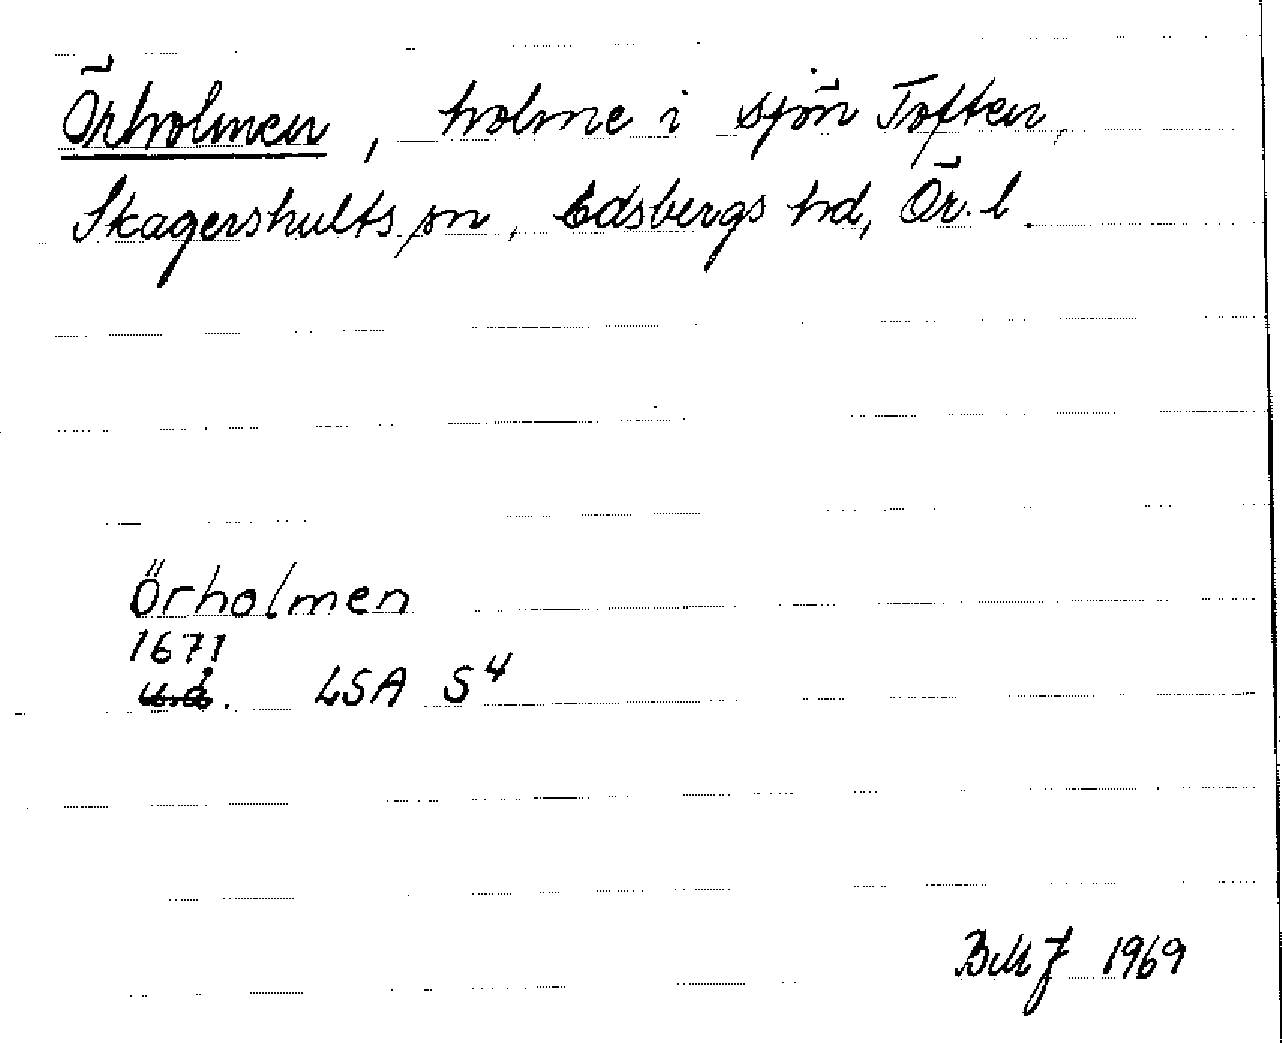 Örholmen, holme i sjön Toften,
Skagershults sn, Edsbergs hd, Ör. l.
Örholmen
1671
u.å. LSA S4
BMJ 1969